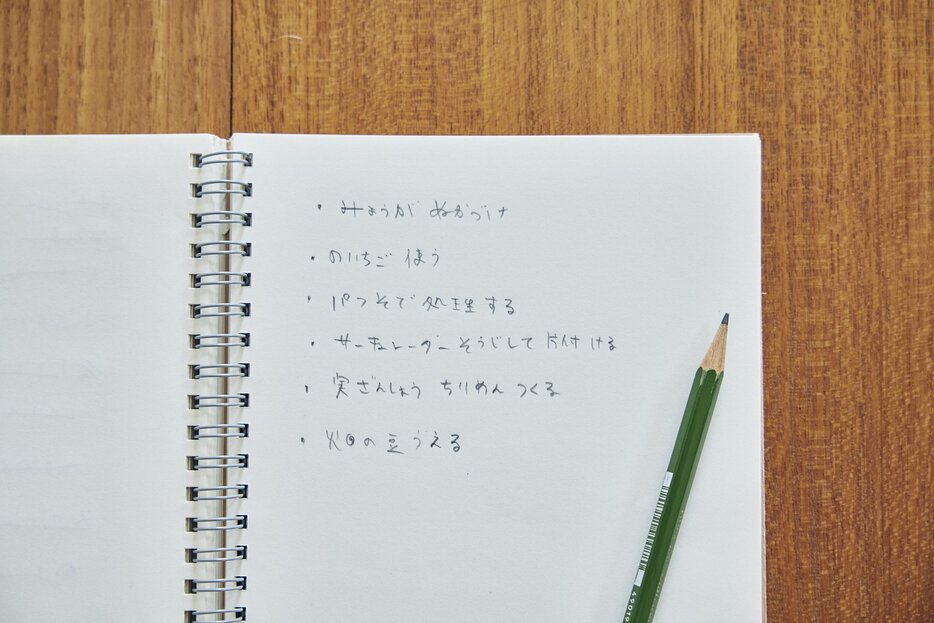 ・みょうが ぬかづけ
・のいちご 使う
・処理する
・サーキュレーターそうじして 片付ける
・実ざんしょう ちりめん つくる
・畑の豆うえる
49019